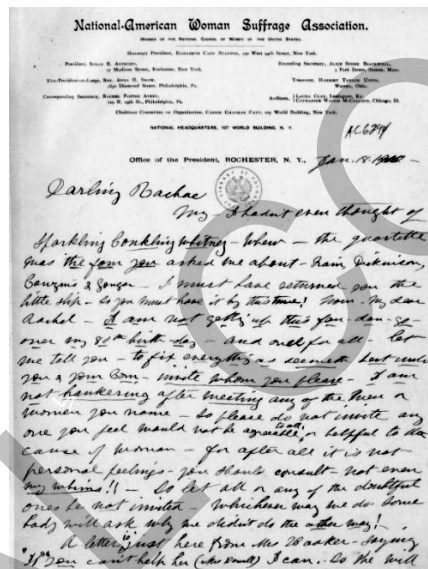 National-American Woman Suffrage Association.
MEMBER OF THE NATIONAL COUNCIL OF WOMEN OF THE UNITED STATES.
Honorary President, ELIZABETH CADY STANTON, 250 West 94th Street, New York.
President, SUSAN B. ANTHONY, Recording Secretary, ALICE STONE BLACKWELL,
17 Madison Street, Rochester, New York. 3 Park Street, Boston, Mass.
Vice-President-at-Large, Rev. ANNA H. SHAW, Treasurer, HARRIET TAYLOR UPTON,
1830 Diamond Street, Philadelphia, Pa. Warren, Ohio.
Corresponding Secretary, RACHEL FOSTER AVERY, Auditors, LAURA CLAY, Lexington, Ky.
Philadelphia, Pa. CATHARINE WAUGH McCULLOCH, Chicago, Ill.
Chairman Committee on Organization, CARRIE CHAPMAN CATT, 107 World Building, New York.
NATIONAL HEADQUARTERS, 107 WORLD BUILDING, N. Y.
Office of the President, ROCHESTER, N. Y., Jan. 18
Darling Rachae
My - I hadn't even thought of
Sparkling Conkling Whitney - Whew - the quartette
was the four you asked me about - Train, Dickinson,
Couzins & Gougar - I must have returned you the
little slip - so you must have it by this time! Now - My dear
Rachel - I am not getting up this fan-dan-go
over my 80th birth-day - and once for all - let
me tell you - to fix everything as seemeth best unto
you & your Com - invite whom you please - I am
not hankering after meeting any of the men or
women you name - So please do not invite any
one you feel would not be agreeable to all, or helpful to the
cause of woman - for after all it is not
personal feelings - you should consult - not even
my whims!! - So let all or any of the doubtful
ones be not invited - Whichever way we do some
body will ask why we didn't do the other way!
A letter is just here from Mrs - saying
If you can't help her I can. So she will